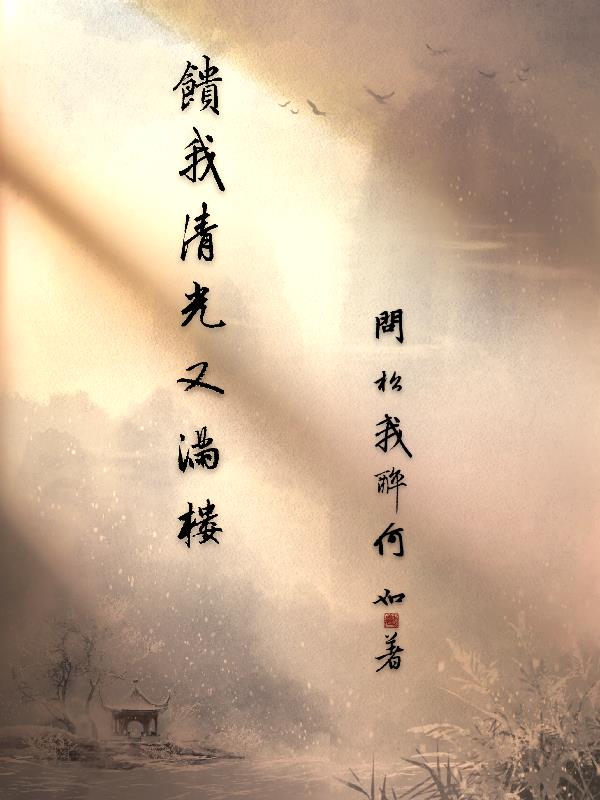 饋我清光又滿樓
問松我醉何如著